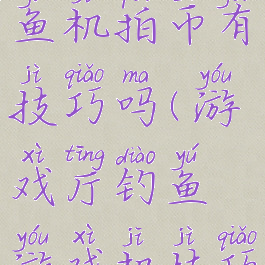 鱼机拍币有
jì qiǎo ma yóu
技巧吗(游
xì tīng diào yú
戏厅钓鱼
yóu xì jī jì qiǎo